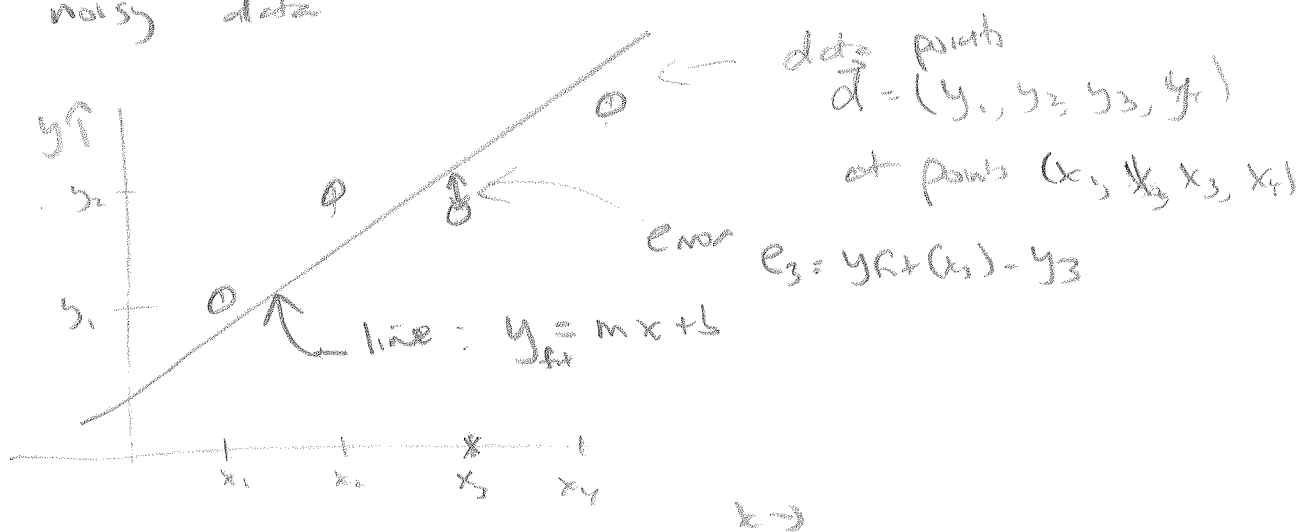 noisy data
data points
d⃗ = (y₁, y₂, y₃, y₄)
at points (x₁, x₂, x₃, x₄)
y↑
y₂
error e₃ = y_fit(x₃) - y₃
y₁
line : y_fit = mx + b
x₁ x₂ x₃ x₄
x →